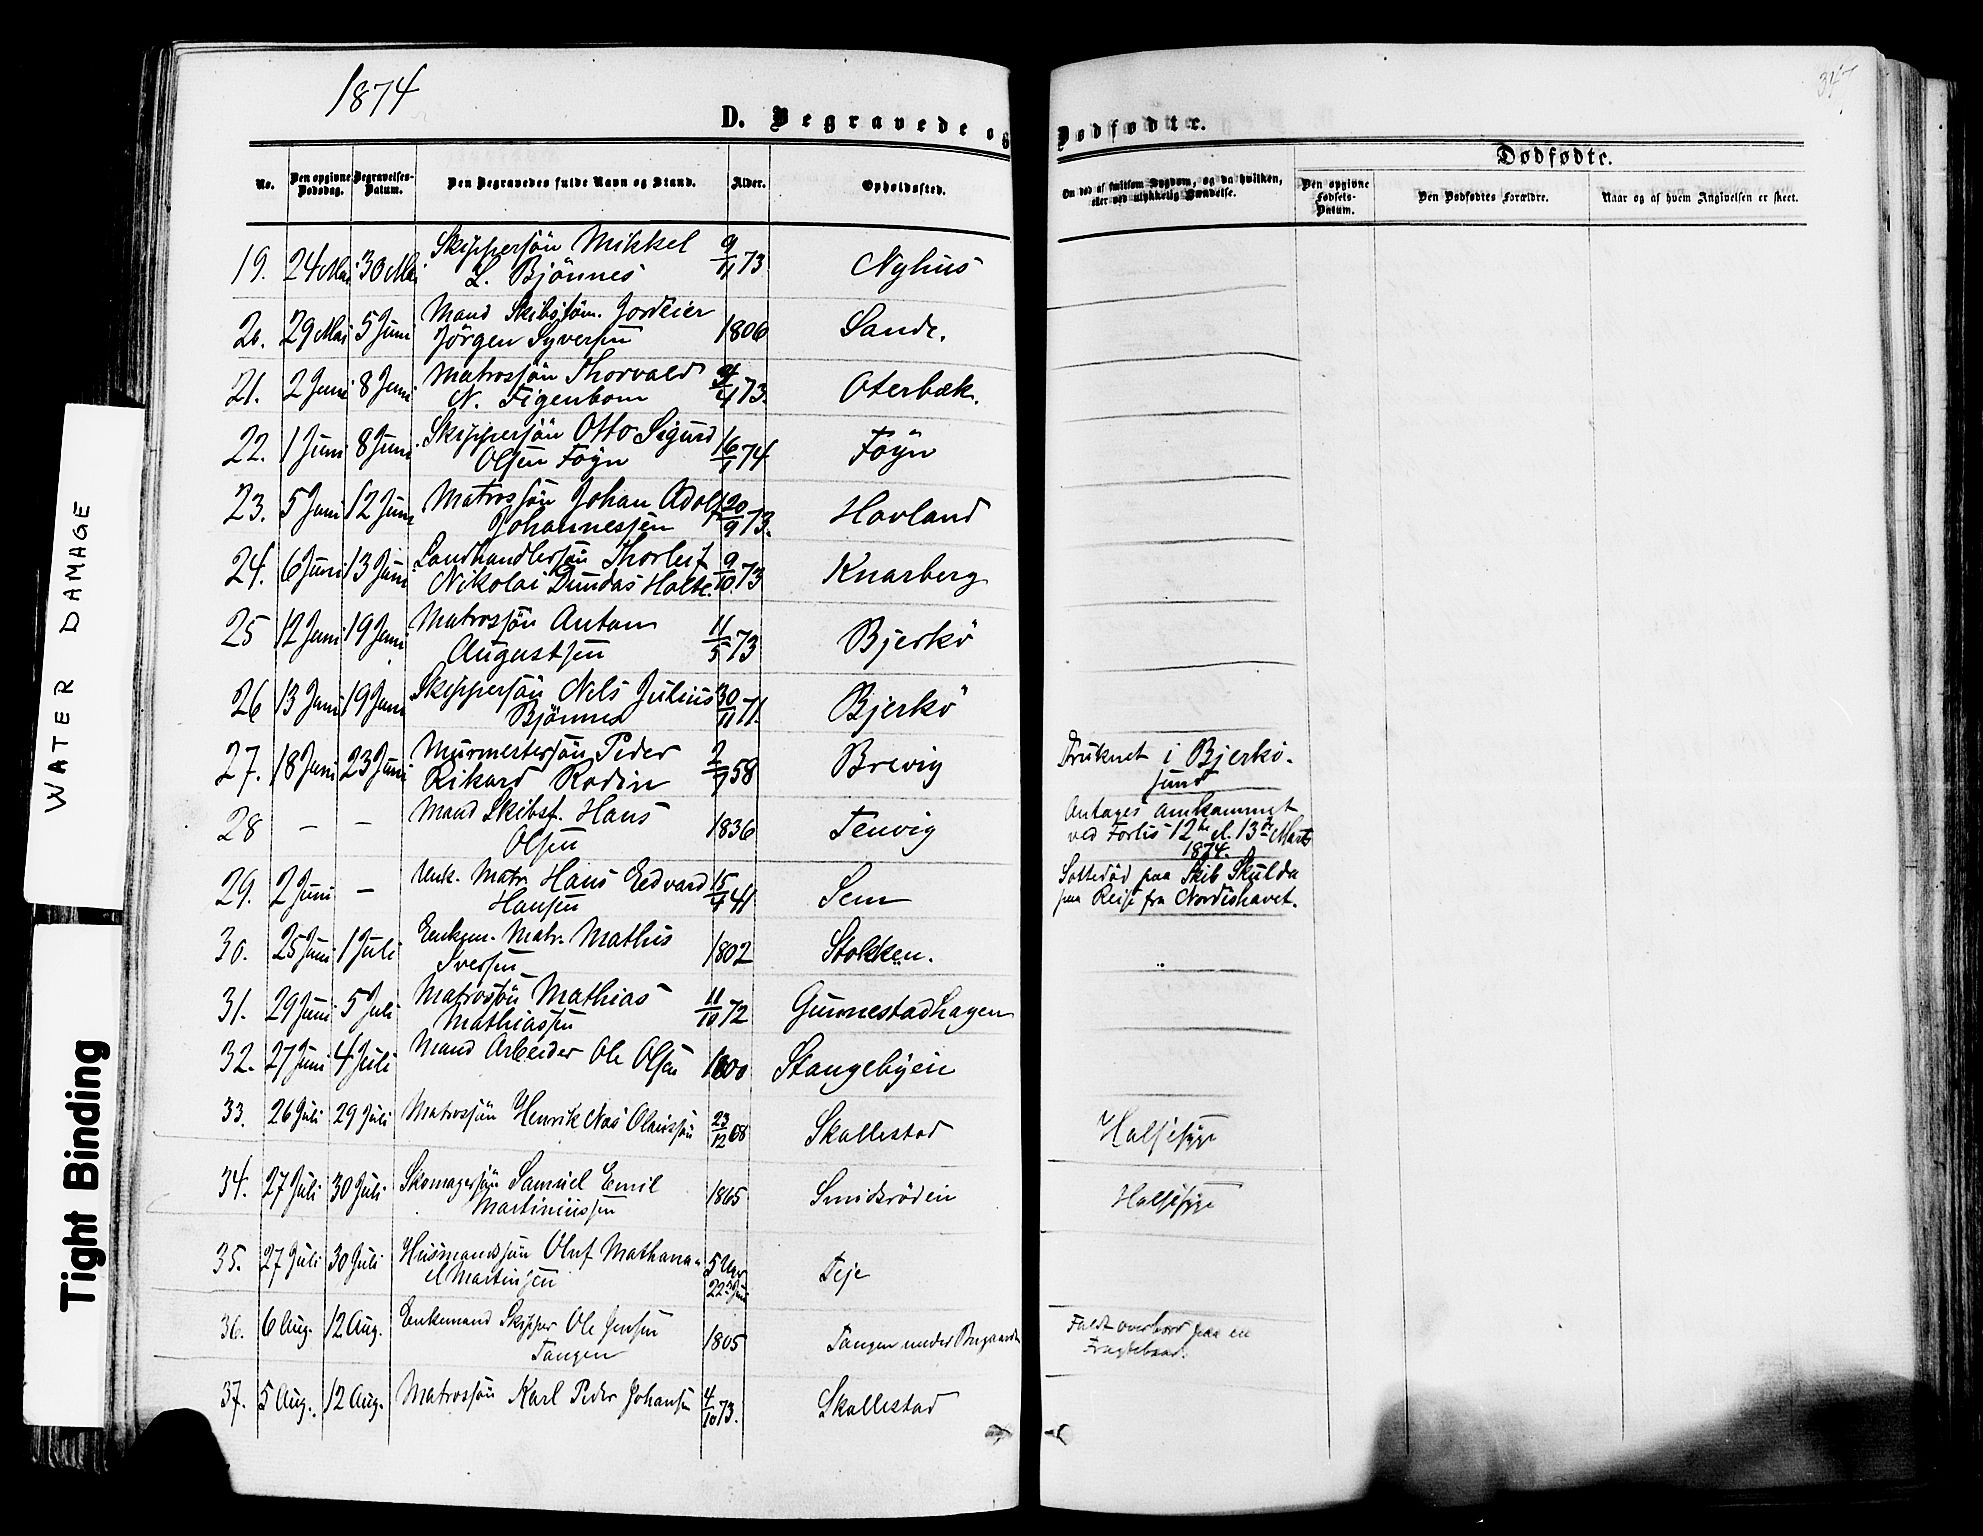 1874
D. Begravede og Dødfødte.
Dødfødte.
No.
Den opgivne Dødsdag.
Begravelses-Datum.
Den Begravedes fulde Navn og Stand.
Alder.
Opholdssted.
Om død af smitsom Sygdom, og da hvilken,
eller ved ulykkelig Hændelse.
Den opgivne Fødsels-Datum.
Den Dødfødtes Forældre.
Naar og af hvem Angivelsen er skeet.
19. 24 Mai 30 Mai Skippersön Mikkel 9/11 73 Nyhus
L. Bjönnes
20. 29 Mai 5 Juni Mand Skibstöm. Jordeier 1806 Sande.
Jörgen Syversen
21. 2 Juni 8 Juni Matrossön Thorvald 73. Oterbæk.
N. Figenbom
22. 1 Juni 8 Juni Skippersön Otto Sigurd 16/1 74 Föyn
Olsen Föyn
23. 5 Juni 12 Juni Matrossön Johan Adolf 20/9 73. Havland
Johannessen
24. 6 Juni 13 Juni Landhandlersön Thorleif 9/10 73 Knarberg
Nikolai Dundas Holte.
25 12 Juni 19 Juni Matrossön Anton 11/5 73 Bjerkö
Augustsen
26 13 Juni 19 Juni Skippersön Nils Julius 30/11 71. Bjerkö
Bjönnes
27. 18 Juni 23 Juni Murmestersön Peder 2/9 58 Brevig Druknet i Bjerkö-
Rikard Rodin sund
28 — — Mand Skibsf. Hans 1836 Tenvig Antages omkommet
Olsen ved Forlis 12te el. 13de Marts
1874.
29. 2 Juni — Unk. Matr. Hans Edvard 15/4 41 Sem Sottedød paa Skib Skulda
Hansen paa Reise fra Nordishavet.
30. 25 Juni 1 Juli Enkem. Matr. Mathis 1802 Stokken.
Iversen
31. 29 Juni 5 Juli Matrossön Mathias 11/10 72 Gunnestadhagen
Mathiassen
32. 27 Juni 4 Juli Mand Arbeider Ole Olsen 1800 Stangebyeie
33. 26 Juli 29 Juli Matrossön Henrik Olaussön 23/12 68 Skallestad Halssyge
34. 27 Juli 30 Juli Skomagersön Samuel Emil 1865 Smidsröden Halssyge
Martiniussen
35. 27 Juli 30 Juli Husmandssön Oluf Mathana- 5 Aar Teje
el Martinsen 22
36. 6 Aug. 12 Aug. Enkemand Skipper Ole Jensen 1805 Tangen under Faldt overbord paa en
Tangen Fragtebaad.
37. 5 Aug. 12 Aug. Matrossön Karl Peder Johansen 4/10 73. Skallestad
WATER DAMAGE
Tight Binding